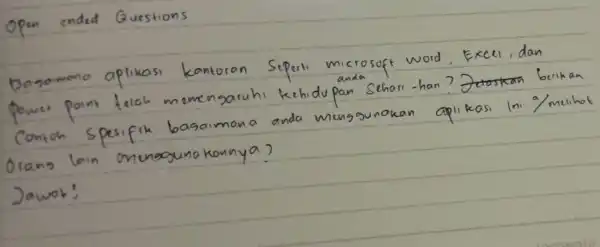 Open ended Questions
Bagaimana aplikasi kantoran Seperti microsoft word, Excel, dan
Power point telah memengaruhi kehidupan anda Sehari-hari? Jelaskan berikan
Contoh spesifik bagaimana anda menggunakan aplikasi ini o/ melihat
Orang lain menggunakannya?
Jawab!